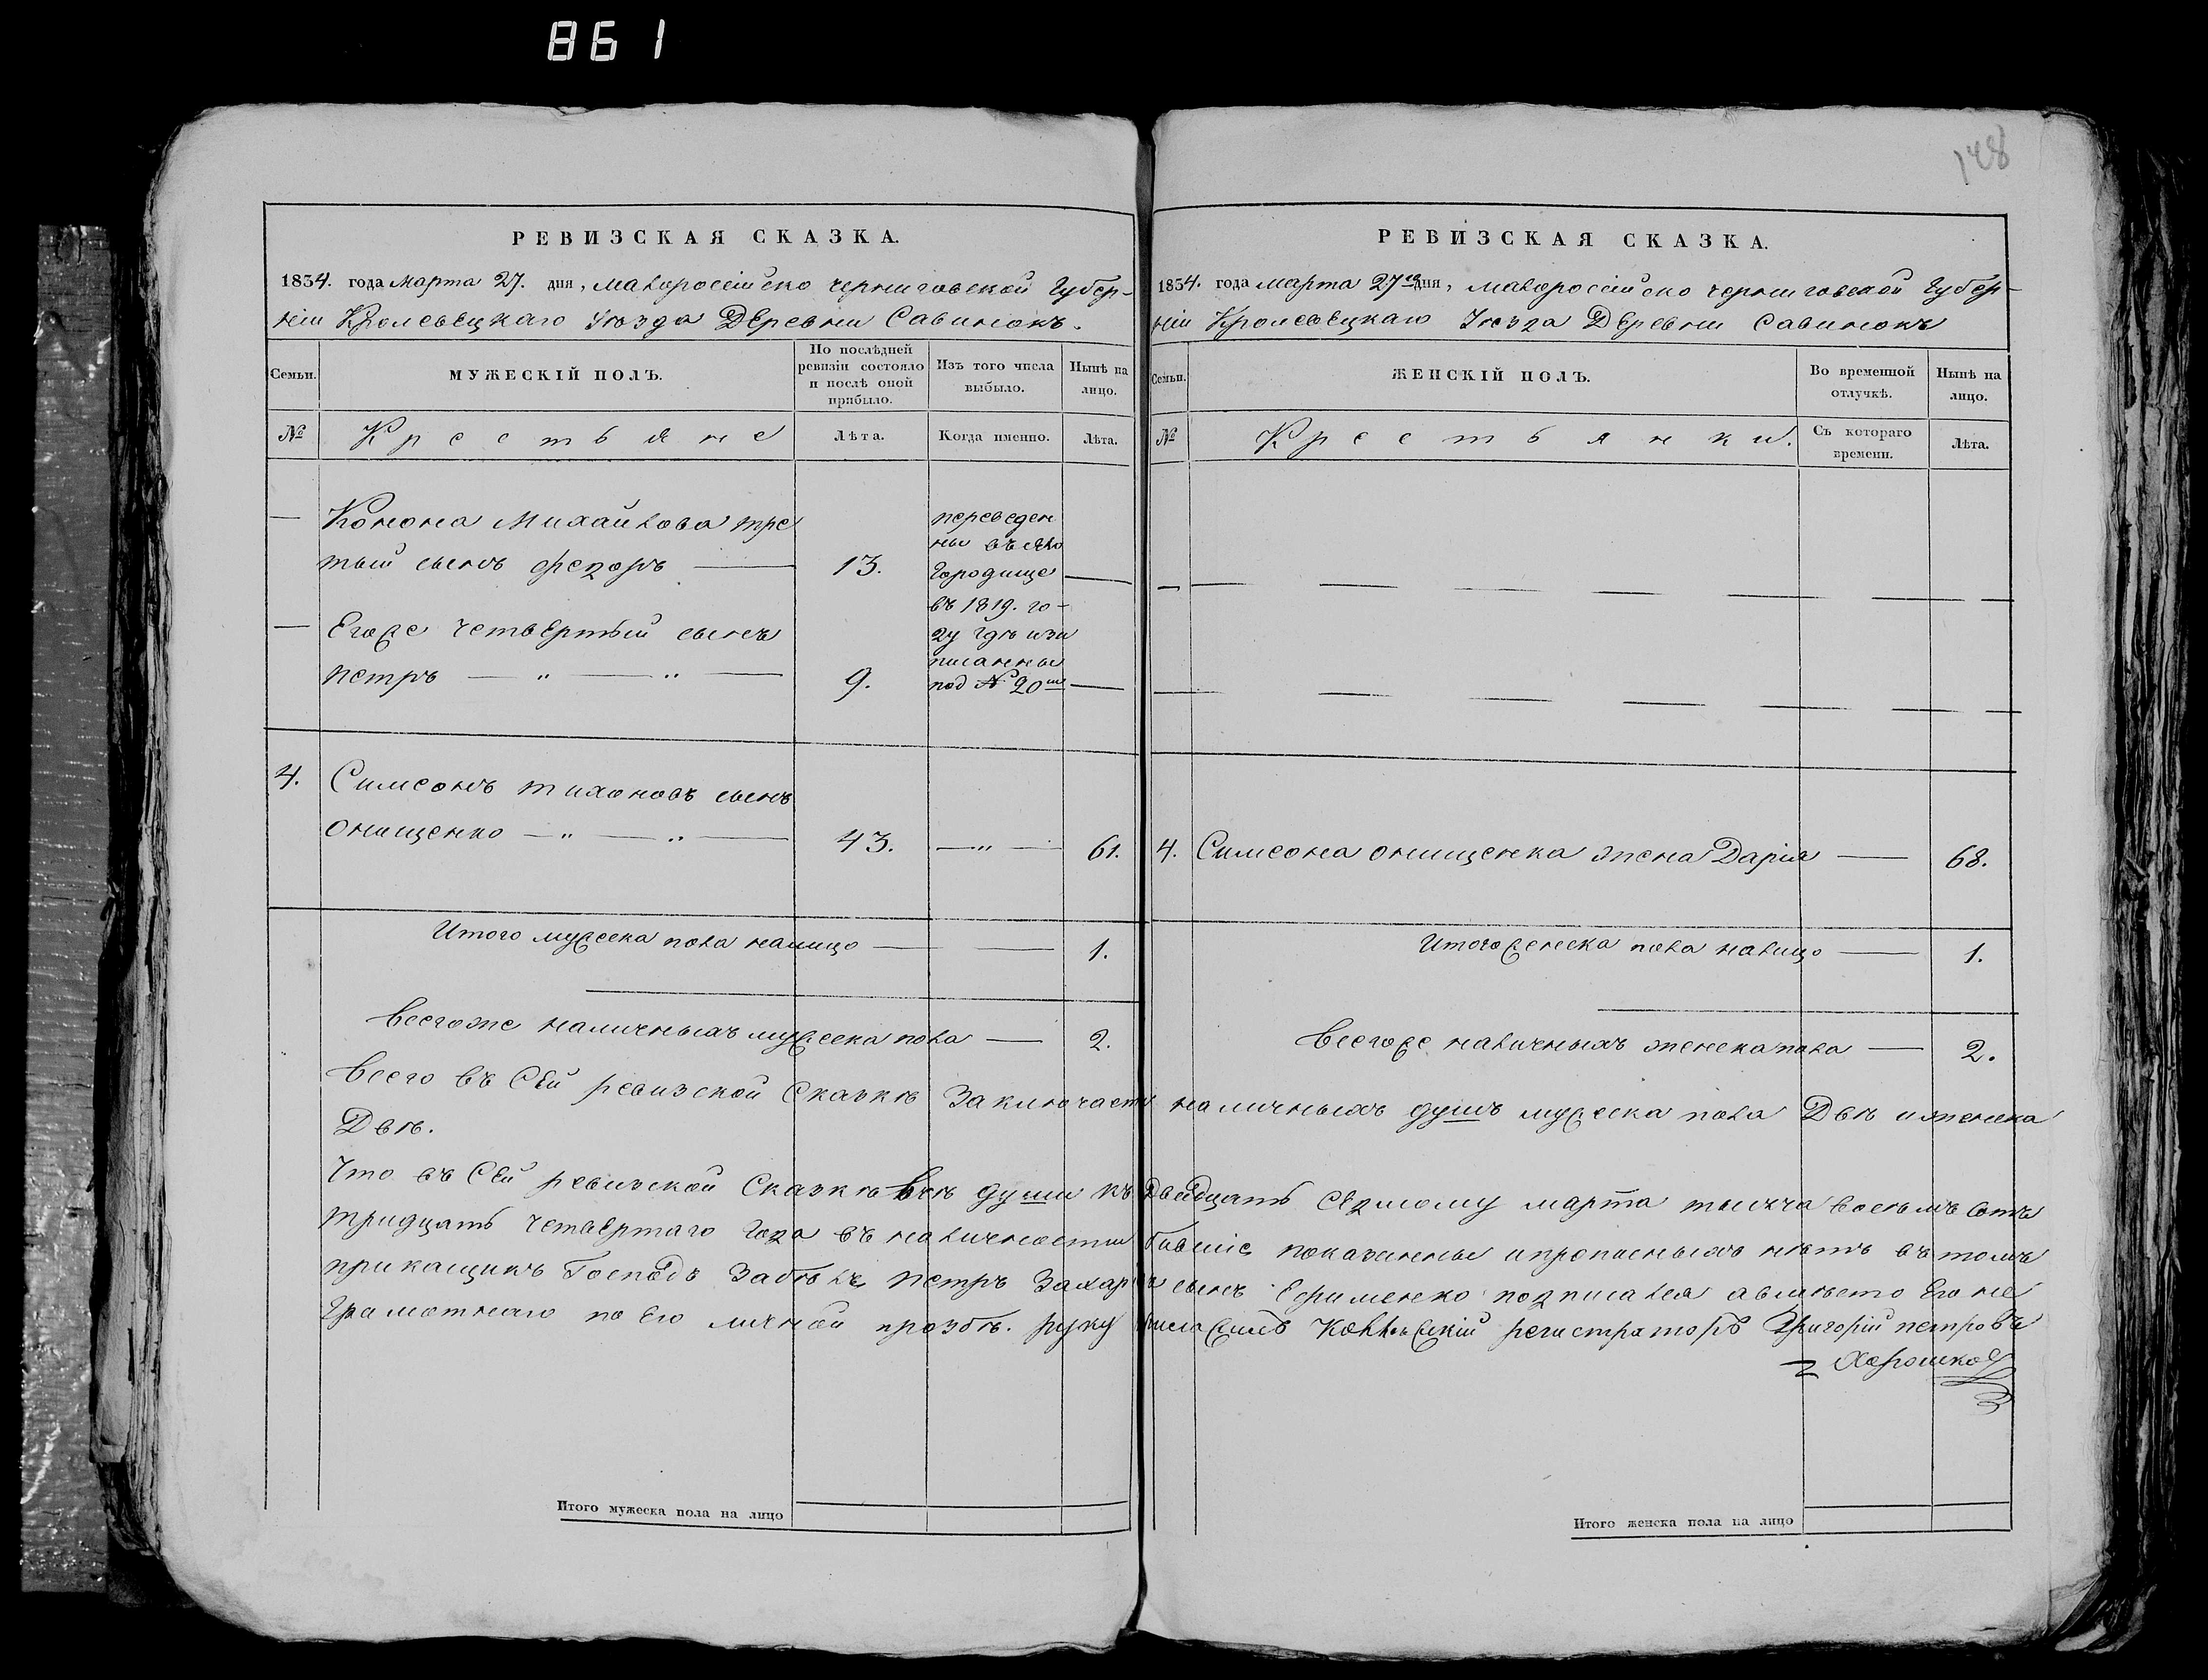 861
148
РЕВИЗСКАЯ СКАЗКА.
1834. года марта 27. дня, Малороссійско Черниговской Губер-
ніи Кролевецкаго Уѣзда Деревни Савинокъ.
Семьи.
МУЖЕСКІЙ ПОЛЪ.
По послѣдней
ревизіи состояло
и послѣ оной
прибыло.
Изъ того числа
выбыло.
Нынѣ на
лицо.
№
Крестьяне
Лѣта.
Когда именно.
Лѣта.
— Конона Михайлова тре
тый сынъ Федоръ — 13.
— Егоже четвертый сынъ
петръ — „ — „ — 9.
переведен
ны въ
Городище
въ 1819. го-
ду гдѣ
писанны
под № 20 —
4. Симеонъ тихоновъ сынъ
Онищенко — „ — „ — 43. — „ — 61.
Итого мужеска пола налицо — — 1.
Всегоже наличныхъ мужеска пола — 2.
РЕВИЗСКАЯ СКАЗКА.
1834. года марта 27го дня, Малороссійско Черниговской Губер-
ніи Кролевецкаго Уезда Деревни Савинокъ
Семьи.
ЖЕНСКІЙ ПОЛЪ.
Во временной
отлучкѣ.
Нынѣ на
лицо.
№
Крестьянки.
Съ котораго
времени.
Лѣта.
4. Симеона Онищенка жена Дарія — 68.
Итого женска пола налицо — 1.
Всегоже наличныхъ женска пола — 2.
Всего въ Сей ревизской Сказкѣ Заключается наличныхъ душъ мужеска пола Двѣ и женска
Двѣ.
Что въ Сей ревизской Сказкѣ Всѣ души къ Двадцать Седмому марта тысяча восемъ сотъ
тридцать четвертаго Года въ наличности бившіе показанны и прописныхъ нѣтъ въ томъ
прикащикъ Господъ Петръ Захаріевъ сынъ Ефименко подписался а вмѣсто Его не
Грамотнаго по Его личной прозбѣ. руку приложилъ Коллежскій регистраторъ Григорій петровъ
Хорошко
Итого мужеска пола на лицо
Итого женска пола на лицо